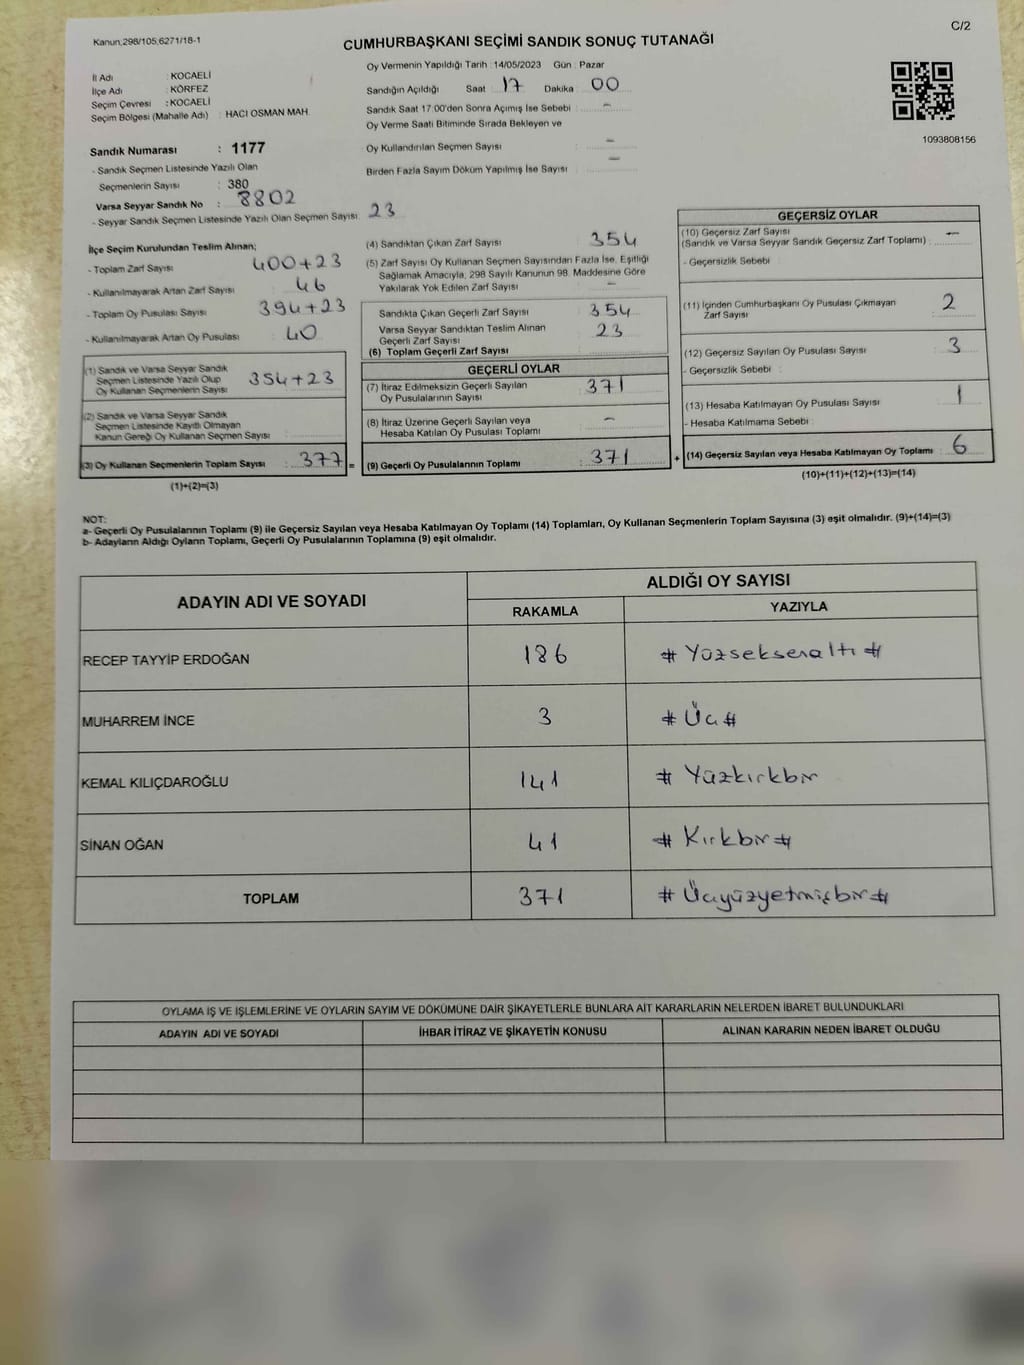 Kanun,298/105,6271/18-1
C/2
CUMHURBAŞKANI SEÇİMİ SANDIK SONUÇ TUTANAĞI
İl Adı : KOCAELİ
İlçe Adı : KÖRFEZ
Seçim Çevresi : KOCAELİ
Seçim Bölgesi (Mahalle Adı) : HACI OSMAN MAH.
Sandık Numarası : 1177
- Sandık Seçmen Listesinde Yazılı Olan
Seçmenlerin Sayısı : 380
Varsa Seyyar Sandık No : 8802
- Seyyar Sandık Seçmen Listesinde Yazılı Olan Seçmen Sayısı : 23
Oy Vermenin Yapıldığı Tarih :14/05/2023 Gün : Pazar
Sandığın Açıldığı Saat 17 Dakika 00
Sandık Saat 17:00'den Sonra Açımış İse Sebebi : -
Oy Verme Saati Bitiminde Sırada Bekleyen ve
Oy Kullandırılan Seçmen Sayısı : -
Birden Fazla Sayım Döküm Yapılmış İse Sayısı : -
1093808156
İlçe Seçim Kurulundan Teslim Alınan;
- Toplam Zarf Sayısı : 400+23
- Kullanılmayarak Artan Zarf Sayısı : 46
- Toplam Oy Pusulası Sayısı : 394+23
- Kullanılmayarak Artan Oy Pusulası : 40
(1) Sandık ve Varsa Seyyar Sandık
Seçmen Listesinde Yazılı Olup
Oy Kullanan Seçmenlerin Sayısı : 354+23
(2) Sandık ve Varsa Seyyar Sandık
Seçmen Listesinde Kayıtlı Olmayan
Kanun Gereği Oy Kullanan Seçmen Sayısı :
(3) Oy Kullanan Seçmenlerin Toplam Sayısı : 377 =
(1)+(2)=(3)
(4) Sandıktan Çıkan Zarf Sayısı : 354
(5) Zarf Sayısı Oy Kullanan Seçmen Sayısından Fazla İse, Eşitliği
Sağlamak Amacıyla, 298 Sayılı Kanunun 98. Maddesine Göre
Yakılarak Yok Edilen Zarf Sayısı : -
Sandıkta Çıkan Geçerli Zarf Sayısı : 354
Varsa Seyyar Sandıktan Teslim Alınan
Geçerli Zarf Sayısı : 23
(6) Toplam Geçerli Zarf Sayısı :
GEÇERLİ OYLAR
(7) İtiraz Edilmeksizin Geçerli Sayılan
Oy Pusulalarının Sayısı : 371
(8) İtiraz Üzerine Geçerli Sayılan veya
Hesaba Katılan Oy Pusulası Toplamı : -
(9) Geçerli Oy Pusulalarının Toplamı : 371 +
GEÇERSİZ OYLAR
(10) Geçersiz Zarf Sayısı
(Sandık ve Varsa Seyyar Sandık Geçersiz Zarf Toplamı) : -
- Geçersizlik Sebebi :
(11) İçinden Cumhurbaşkanı Oy Pusulası Çıkmayan
Zarf Sayısı : 2
(12) Geçersiz Sayılan Oy Pusulası Sayısı : 3
- Geçersizlik Sebebi :
(13) Hesaba Katılmayan Oy Pusulası Sayısı : 1
- Hesaba Katılmama Sebebi :
(14) Geçersiz Sayılan veya Hesaba Katılmayan Oy Toplamı : 6
(10)+(11)+(12)+(13)=(14)
NOT:
a- Geçerli Oy Pusulalarının Toplamı (9) ile Geçersiz Sayılan veya Hesaba Katılmayan Oy Toplamı (14) Toplamları, Oy Kullanan Seçmenlerin Toplam Sayısına (3) eşit olmalıdır. (9)+(14)=(3)
b- Adayların Aldığı Oyların Toplamı, Geçerli Oy Pusulalarının Toplamına (9) eşit olmalıdır.
ADAYIN ADI VE SOYADI ALDIĞI OY SAYISI
RAKAMLA YAZIYLA
RECEP TAYYİP ERDOĞAN 186 # Yüzseksenaltı #
MUHARREM İNCE 3 # Üç #
KEMAL KILIÇDAROĞLU 141 # Yüzkırkbir
SİNAN OĞAN 41 # Kırkbir #
TOPLAM 371 # Üçyüzyetmişbir #
OYLAMA İŞ VE İŞLEMLERİNE VE OYLARIN SAYIM VE DÖKÜMÜNE DAİR ŞİKAYETLERLE BUNLARA AİT KARARLARIN NELERDEN İBARET BULUNDUKLARI
ADAYIN ADI VE SOYADI İHBAR İTİRAZ VE ŞİKAYETİN KONUSU ALINAN KARARIN NEDEN İBARET OLDUĞU